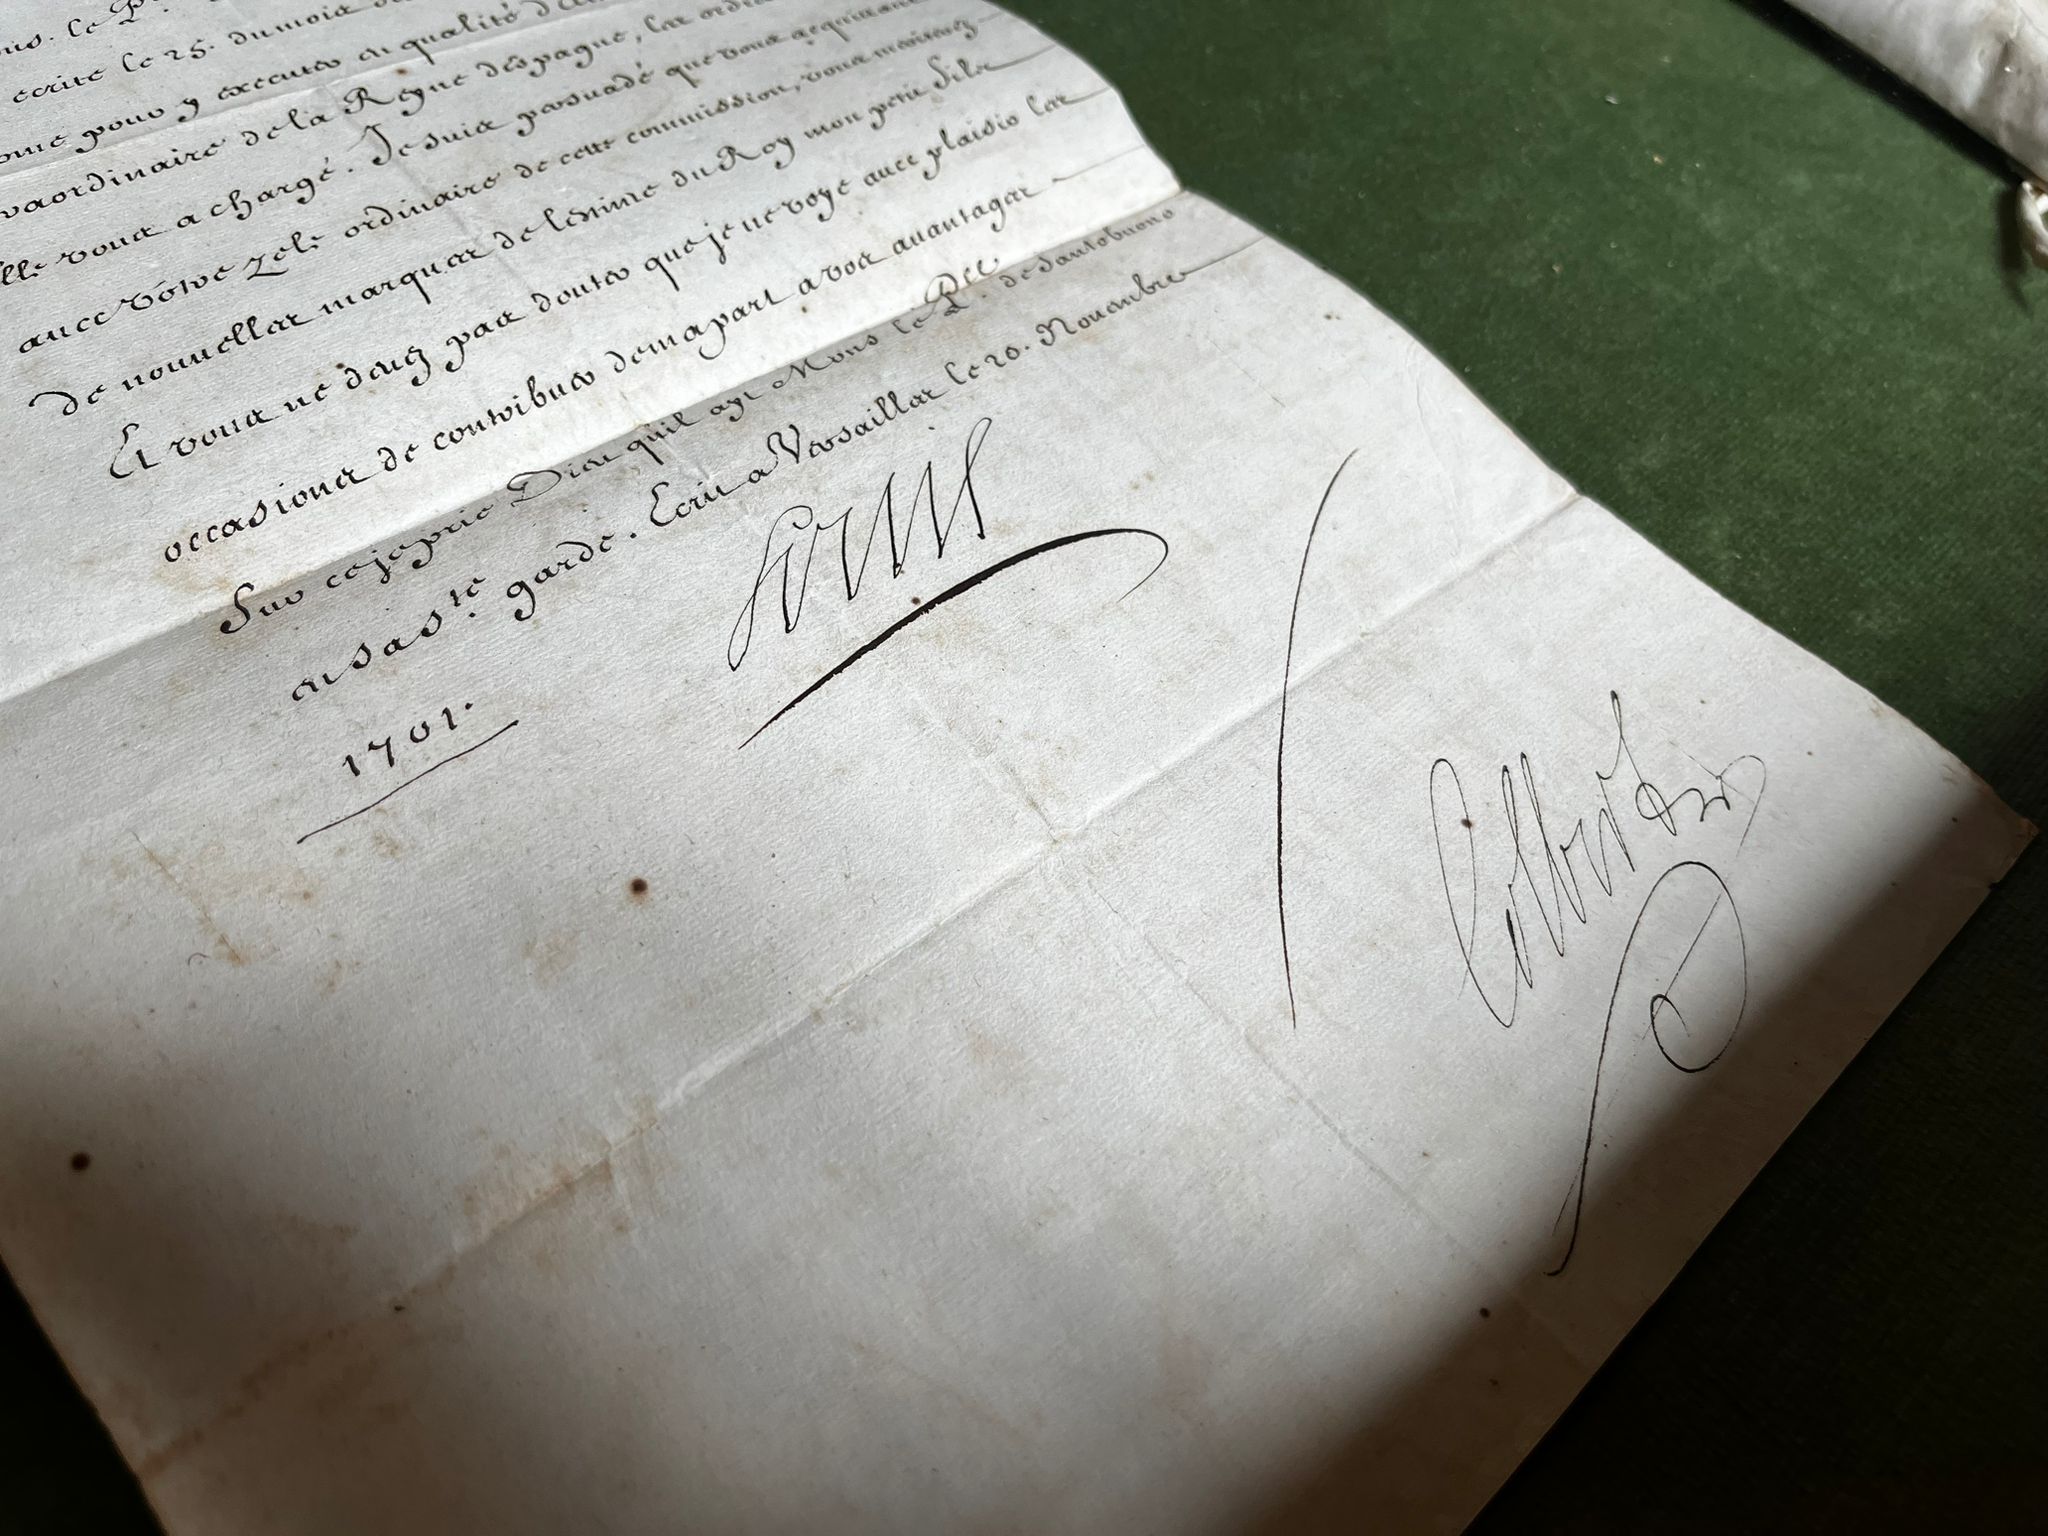 ous. le P
ecrite le 25. du mois de
ome pour y executer en qualité d'
raordinaire de la Reyne despagne, les ordres
elle vous a chargé. Je suis persuadé que vous acquittant
auec vôtre zele ordinaire de cette commission, vous meriterez
de nouuelles marques de lestime du Roy mon petit fils
Et vous ne deuez pas douter que je ne voye auec plaisir les
occasions de contribuer de ma part a vos auantages
Sur ce je prie Dieu qu'il ayt Mons. le P.ce de Santobuono
en sa s.te garde. Ecrit a Versailles le 20. Nouembre
1701.
Louis
Colbert